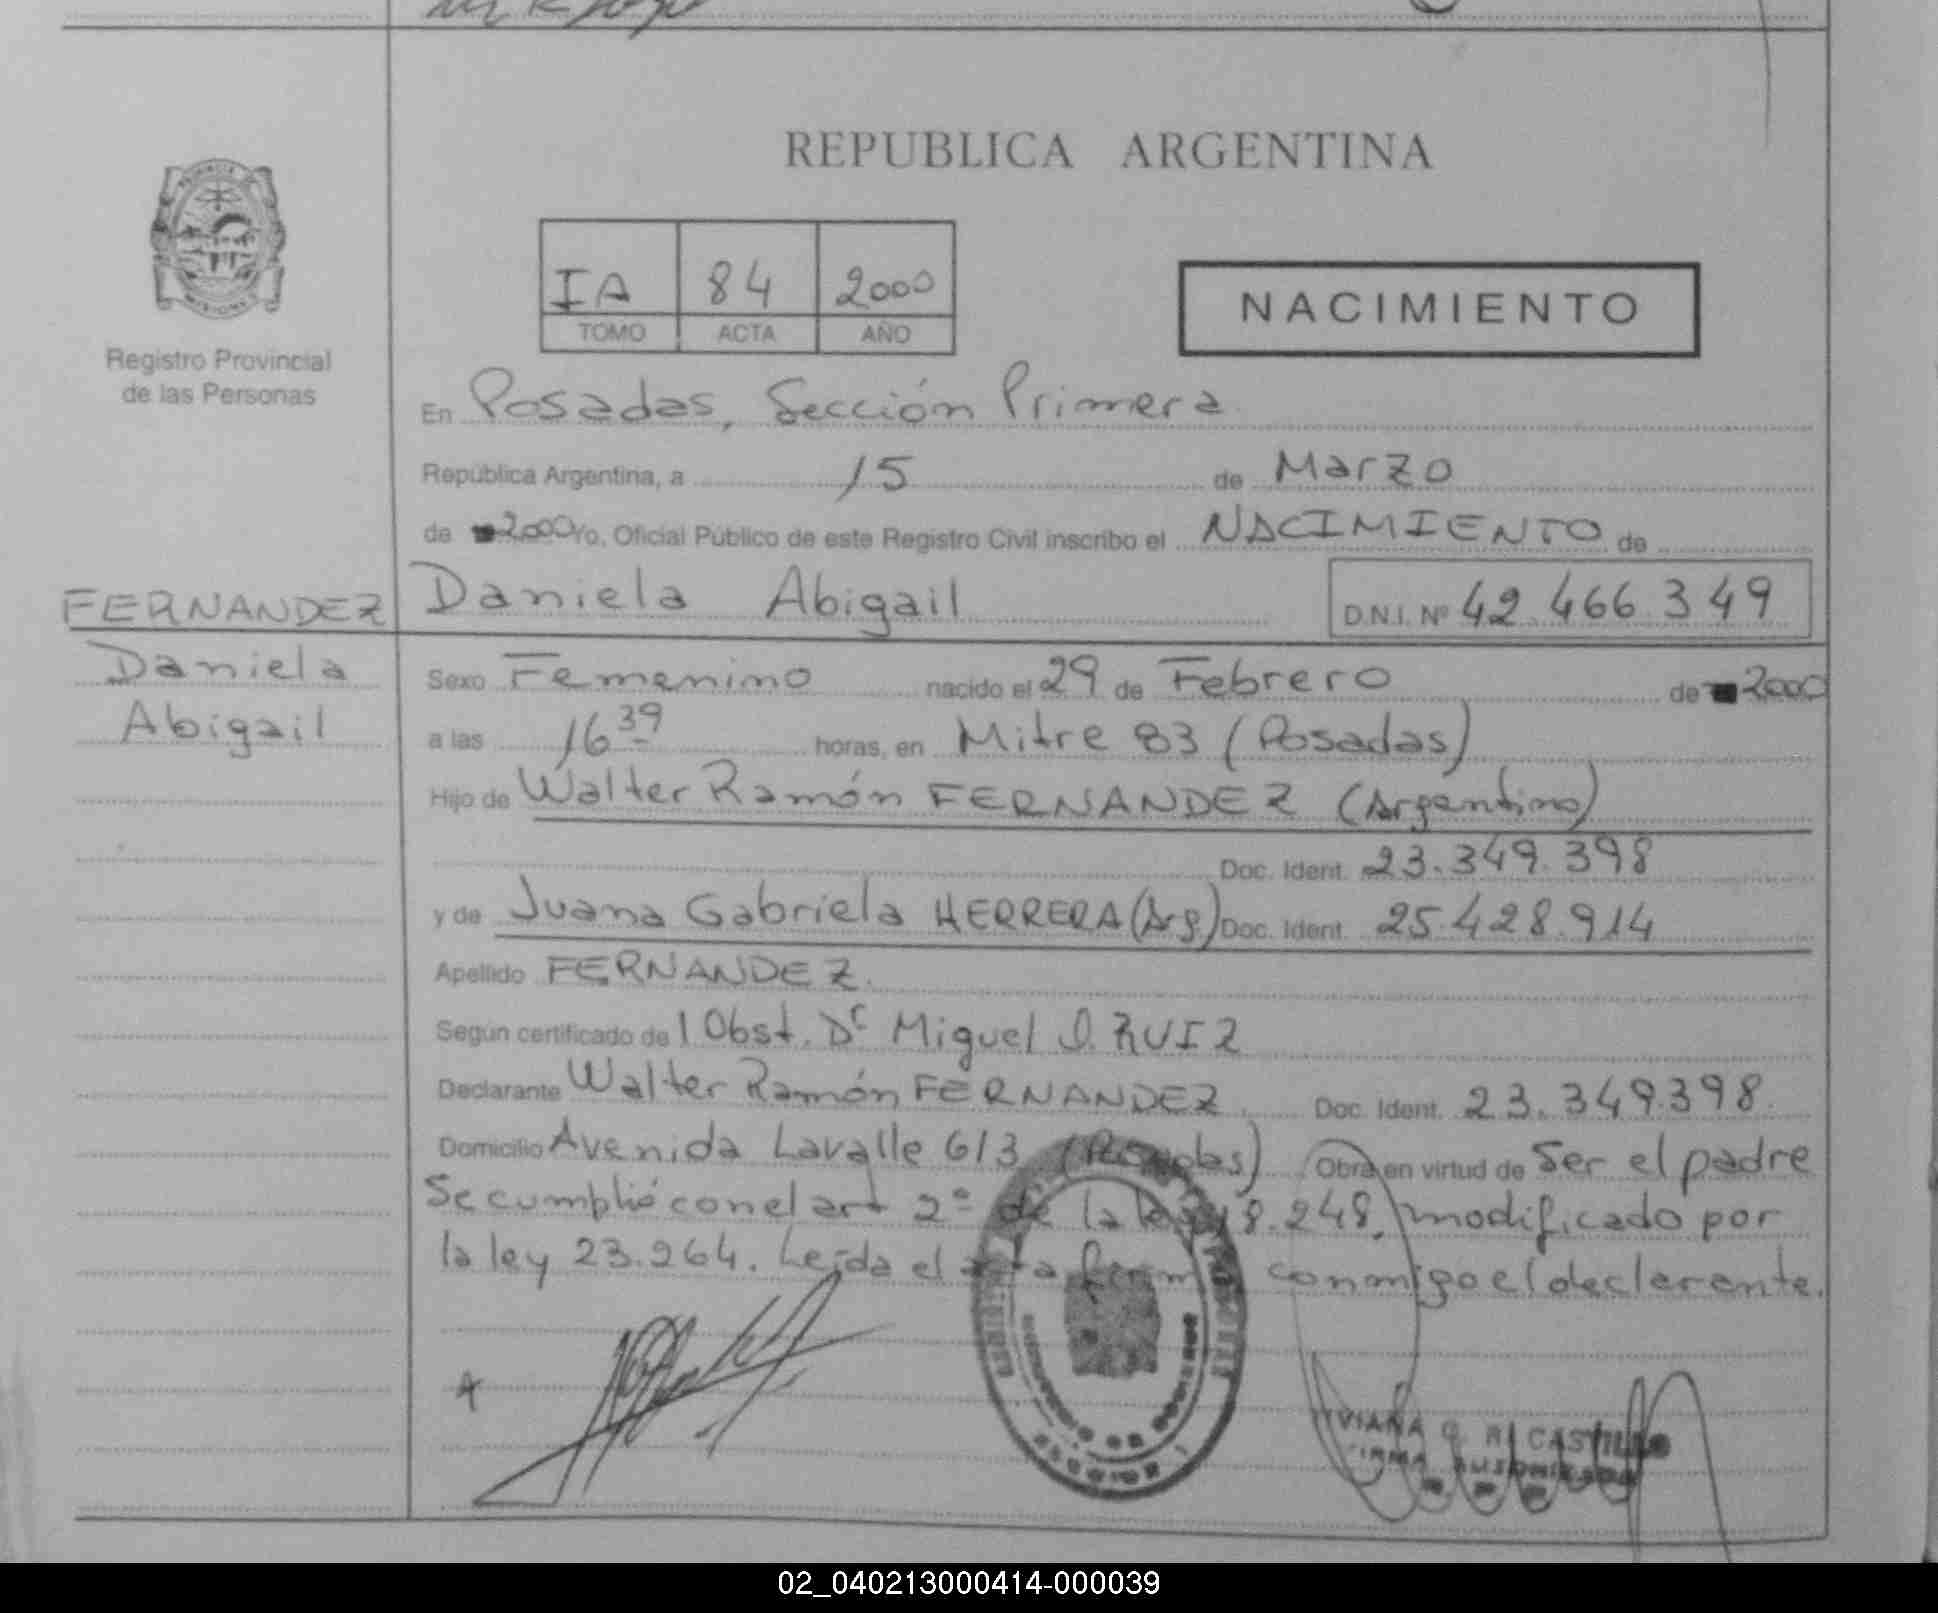 REPUBLICA ARGENTINA
IA 84 2000
TOMO ACTA AÑO
NACIMIENTO
Registro Provincial
de las Personas
En Posadas, Sección Primera
República Argentina, a 15 de Marzo
de 2000 Yo, Oficial Público de este Registro Civil inscribo el NACIMIENTO de
FERNANDEZ
Daniela
Abigail
Daniela Abigail D.N.I. Nº 42.466.349
Sexo Femenino nacido el 29 de Febrero de 2000
a las 16 39 horas, en Mitre 83 (Posadas)
Hijo de Walter Ramón FERNANDEZ (Argentino)
Doc. Ident. 23.349.398
y de Juana Gabriela HERRERA (Arg.) Doc. Ident. 25.428.914
Apellido FERNANDEZ.
Según certificado de l Obst. Dr Miguel O. RUIZ
Declarante Walter Ramón FERNANDEZ. Doc. Ident. 23.349.398.
Domicilio Avenida Lavalle 613 (Posadas) Obra en virtud de Ser el padre
Se cumplió con el art 2º de la ley 18.248, modificado por
la ley 23.264. Leída el acta firma conmigo el declarante.
CASTILLO
02_040213000414-000039